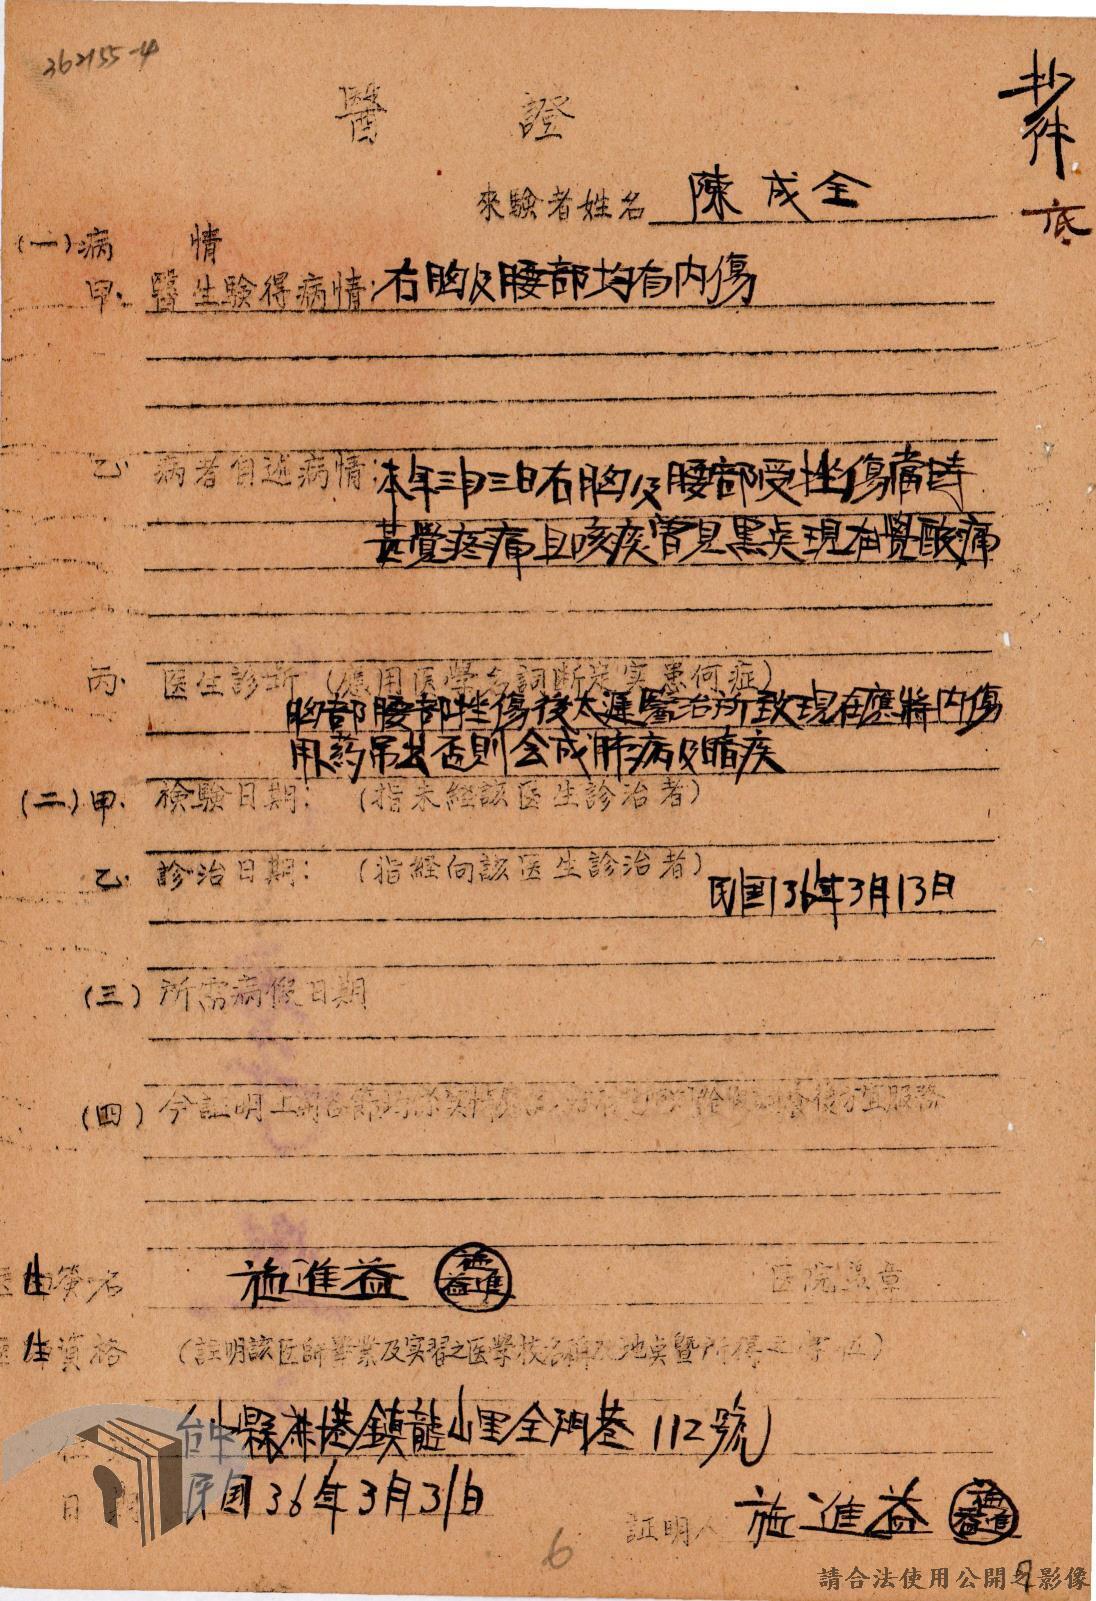 362155-4
抄件
底
醫 證
來驗者姓名 陳成全
(一)病 情
甲、醫生驗得病情:右胸及腰部均有内傷
乙、病者自述病情:本年三月三日右胸及腰部受挫傷當時
甚覺疼痛且咳痰曾見黑点現在覺酸痛
丙、医生診断(應用医學名詞断定实患何症)
胸部腰部挫傷後太遲醫治所致現在應將内傷
用药吊出否則会成肺病及暗疾
(二)甲、檢驗日期:(指未經該医生診治者)
乙、診治日期:(指經向該医生診治者)
民国36年3月13日
(三)所需病假日期
(四)今証明 服務
生簽名 施進益 施進益 医院蓋章
生資格 (註明該医師畢業及实習之医學校名稱及地点暨所得之學位)
台中縣鹿港鎮龍山里全門巷112號
日期 民国36年3月31日
証明人 施進益 施進益
6
9
請合法使用公開之影像